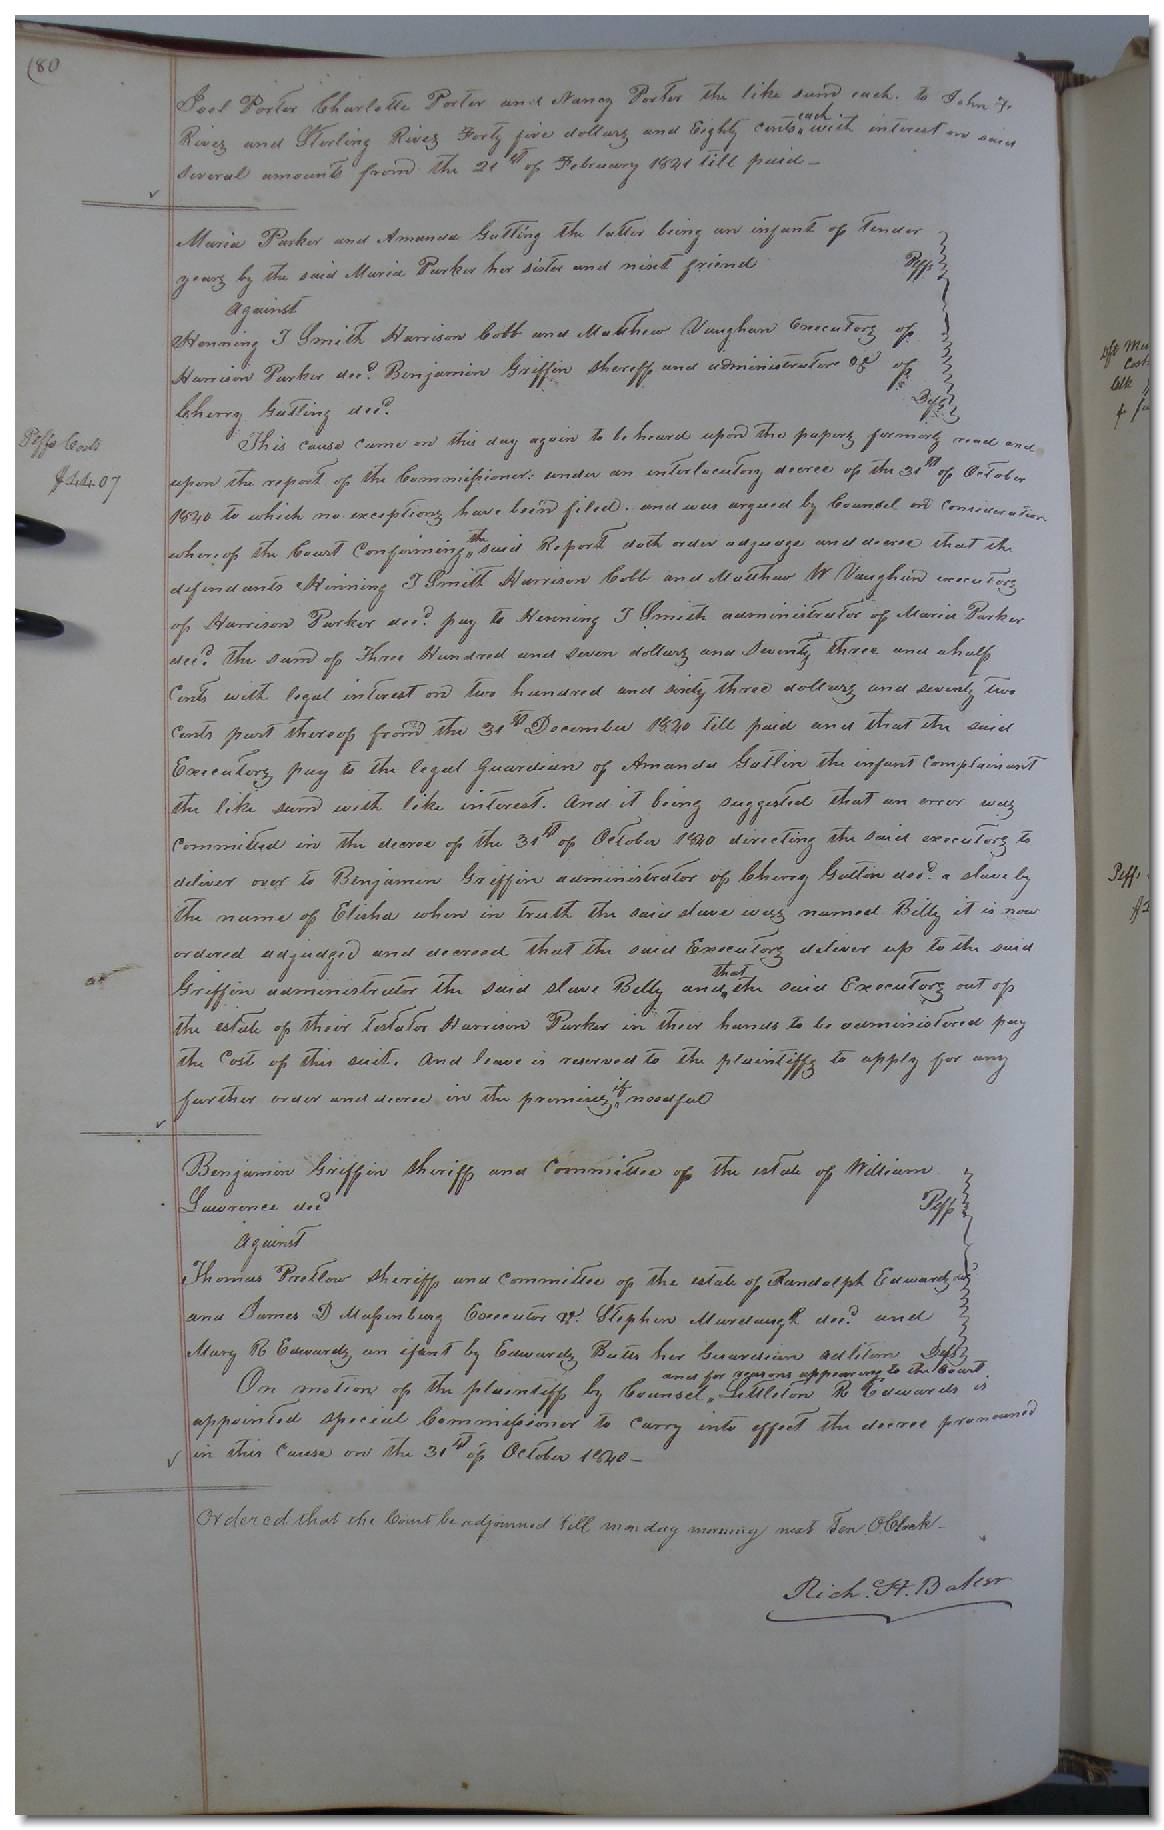 (80
Joel Porter Charlotte Porter and Nancy Porter the like sum each. to John
Rives and Sterling Rives Forty five dollars and Eighty cents each with interest on said
several amounts from the 21st of February 1821 till paid —
Maria Parker and Amanda Gatling the latter being an infant of tender
years by the said Maria Parker her sister and next friend Plffs
against
Henning T Smith Harrison Cobb and Matthew Vaughan Executors of
Harrison Parker decd. Benjamin Griffin sheriff and administrator of
Cherry Gatling decd. Defts
This cause came on this day again to be heard upon the papers formerly read and
Plffs Costs
upon the report of the Commissioner: under an interlocutory decree of the 31st of October
$44.07
1840 to which no exceptions have been filed. and was argued by Counsel on consideration
whereof the Court Confirming the said Report doth order adjudge and decree that the
defendants Henning T Smith Harrison Cobb and Matthew W Vaughan executors
of Harrison Parker decd. pay to Henning T Smith administrator of Maria Parker
decd. the sum of Three Hundred and seven dollars and Seventy three and a half
Cents with legal interest on two hundred and sixty three dollars and seventy two
cents part thereof from the 31st December 1840 till paid and that the said
Executors pay to the legal guardian of Amanda Gatlin the infant complainant
the like sum with like interest. And it being suggested that an error was
committed in the decree of the 31st of October 1840 directing the said executors to
deliver over to Benjamin Griffin administrator of Cherry Gatlin decd. a slave by
the name of Elisha when in truth the said slave was named Billy it is now
ordered adjudged and decreed that the said Executors deliver up to the said
Griffin administrator the said slave Billy and that the said Executors out of
the estate of their testator Harrison Parker in their hands to be administered pay
the Cost of this suit. And leave is reserved to the plaintiffs to apply for any
further order and decree in the premises if needful
Benjamin Griffin sheriff and Committee of the estate of William
Lawrence decd Plff
against
Thomas Pretlow sheriff and committee of the estate of Randolph Edwards
and James D Massenburg Executor &c. Stephen Murdaugh decd. and
Mary R Edwards an ifant by Edwards Butts her Guardian ad litem Defts
On motion of the plaintiff by Counsel and for reasons appearing to the Court Littleton R Edwards is
appointed special Commissioner to carry into effect the decree pronounced
in this cause on the 31st of October 1840 —
Ordered that the Court be adjourned till monday morning next Ten OClock —
Rich. H. Baker
Plffs